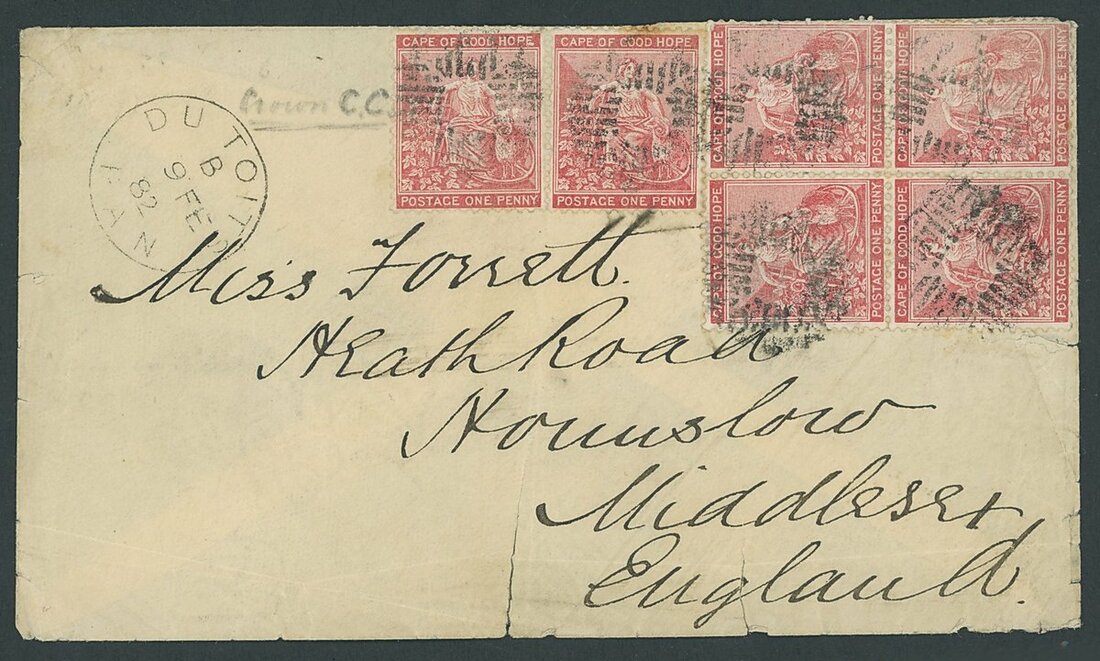 CAPE OF GOOD HOPE
POSTAGE ONE PENNY
CAPE OF GOOD HOPE
POSTAGE ONE PENNY
CAPE OF GOOD HOPE
POSTAGE ONE PENNY
CAPE OF GOOD HOPE
POSTAGE ONE PENNY
CAPE OF GOOD HOPE
POSTAGE ONE PENNY
CAPE OF GOOD HOPE
POSTAGE ONE PENNY
Crown C.C.
DU TOITS PAN
B
9 FE
82
Miss Forrett.
Heath Road
Hounslow
Middlesex
England.